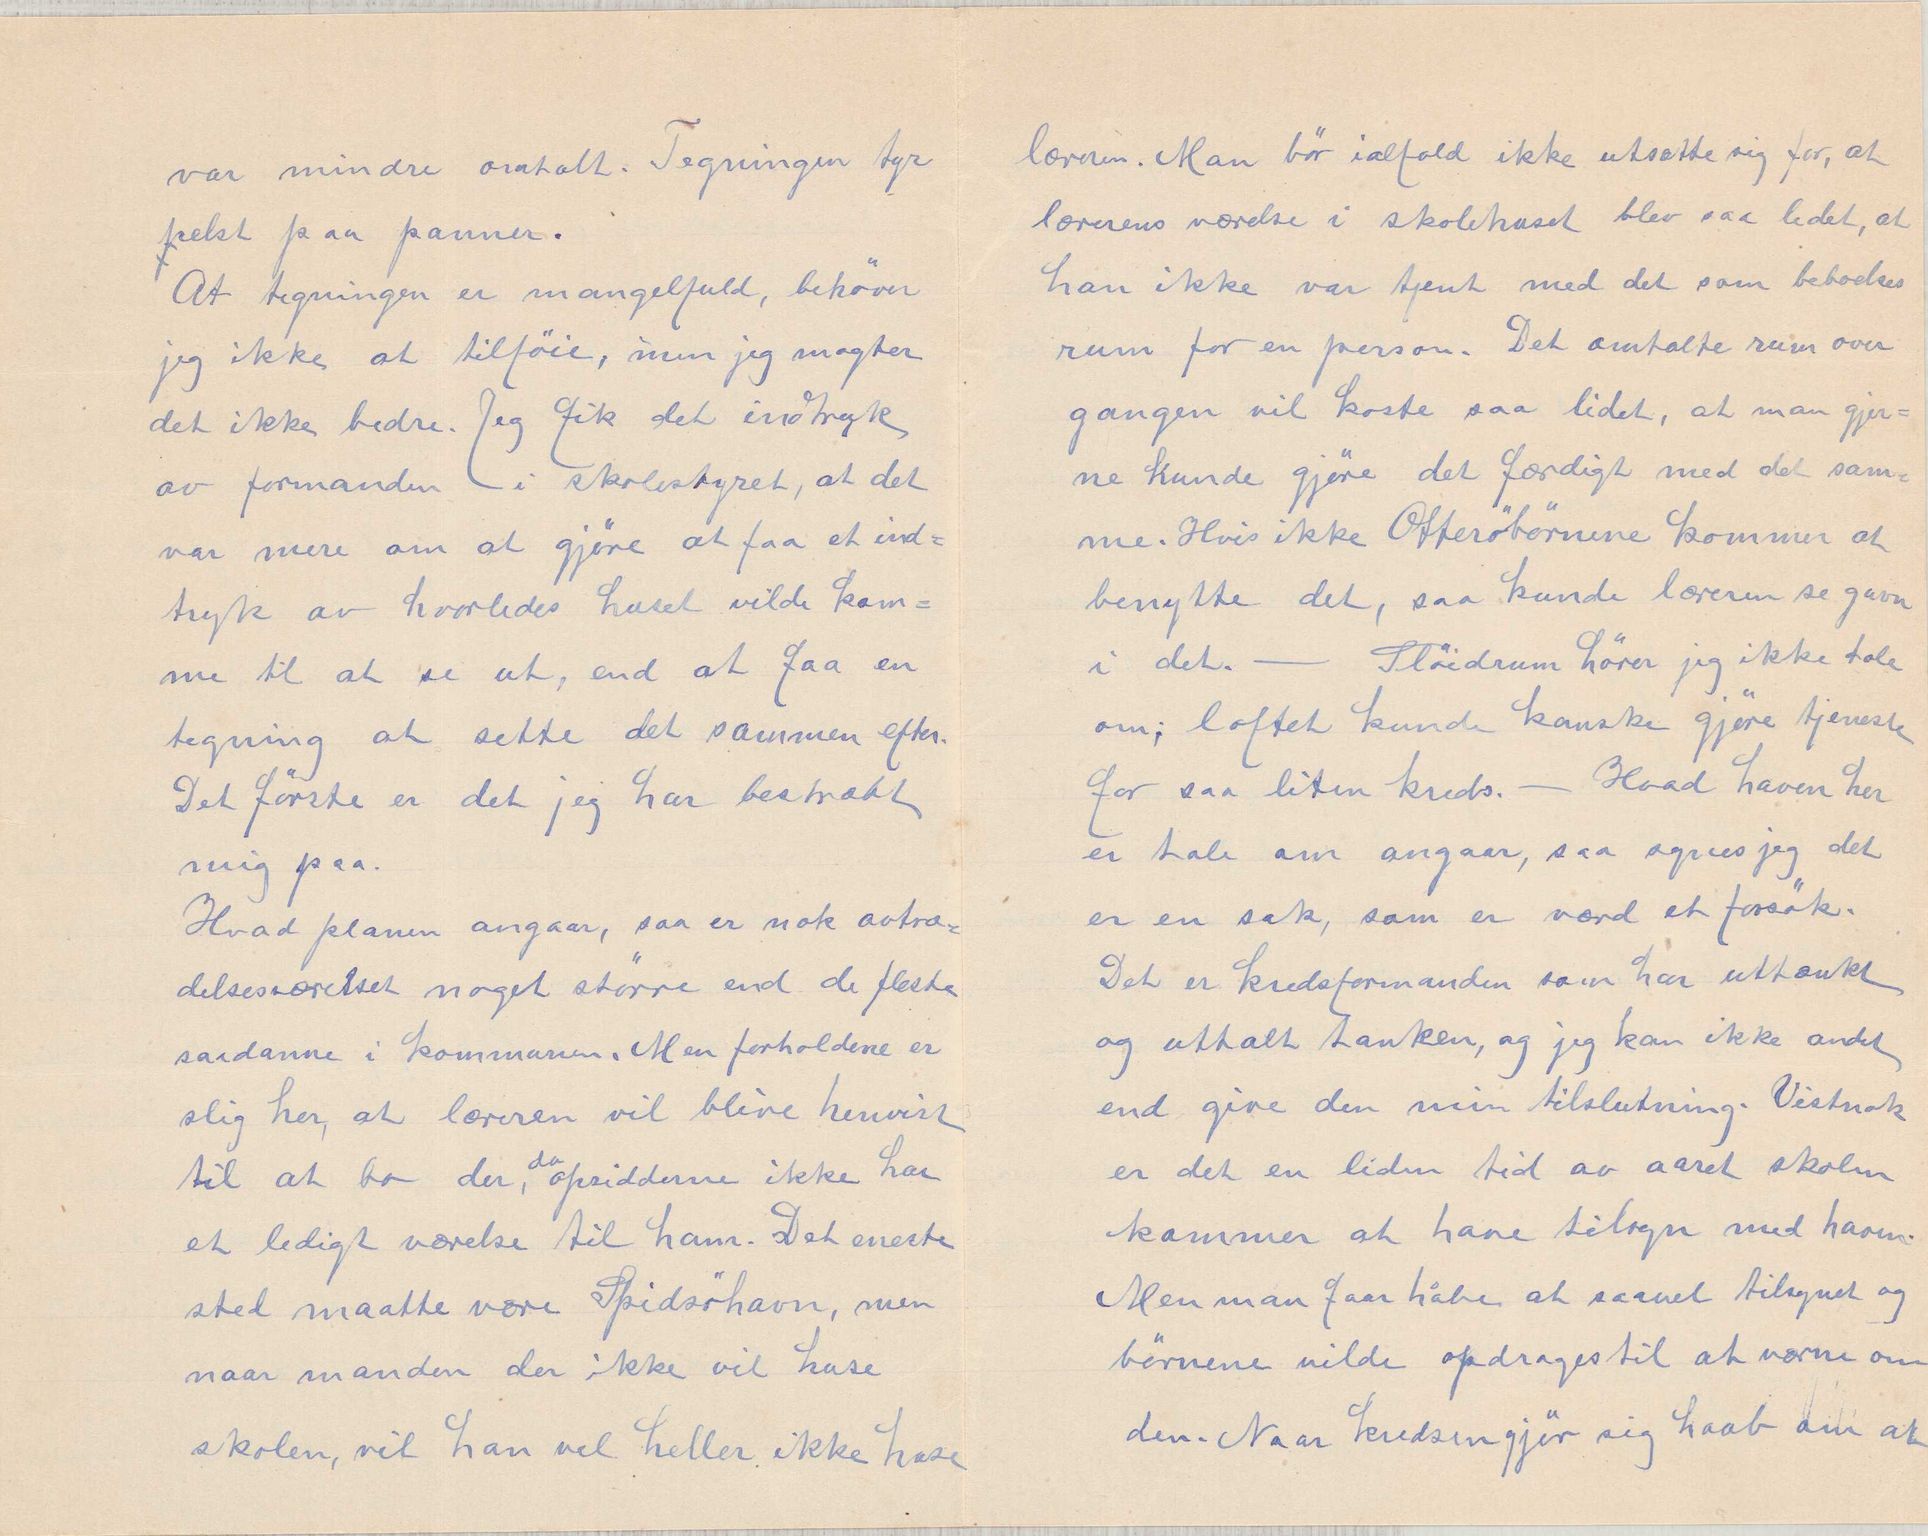 var mindre omtalt. Tegningen tyr
pelst paa panner.
At tegningen er mangelfuld, behöver
jeg ikke at tilföie, men jeg magter
det ikke bedre. Jeg fik det indtryk
av formanden i skolestyret, at det
var mere om at gjöre at faa et ind=
tryk av hvorledes huset vilde kom=
me til at se ut, end at faa en
tegning at sette det sammen efter.
Det förste er det jeg har bestræbt
mig paa.
Hvad planen angaar, saa er nok avtræ=
delsesværelset noget större end de fleste
saadanne i kommunen. Men forholdene er
slig her, at læreren vil blive henvist
til at bo der, da opsidderne ikke har
et ledigt værelse til ham. Det eneste
sted maatte være Spidsöhavn, men
naar manden der ikke vil huse
skolen, vil han vel heller ikke huse
læreren. Man bör ialfald ikke utsætte sig for, at
lærerens værelse i skolehuset blev saa ledet, at
han ikke var tjent med det som beboelses
rum for en person. Det omtalte rum over
gangen vil koste saa lidet, at man gjer=
ne kunde gjöre det færdigt med det sam=
me. Hvis ikke Otteröbörnene kommer at
benytte det, saa kunde læreren se gavn
i det. — Slöidrum hörer jeg ikke tale
om; loftet kunde kanske gjöre tjeneste
for saa liten kreds. — Hvad haven her
er tale om angaar, saa synes jeg det
er en sak, som er værd et forsök.
Det er kredsformanden som har uttænkt
og uttalt tanken, og jeg kan ikke andet
end give den min tilslutning. Vistnok
er det en liden tid av aaret skolen
kommer at have tilsyn med haven.
Men man faar håbe at saavel tilsynet og
börnene vilde opdrages til at verne om
den. Naar kredsen gjör sig haab om at